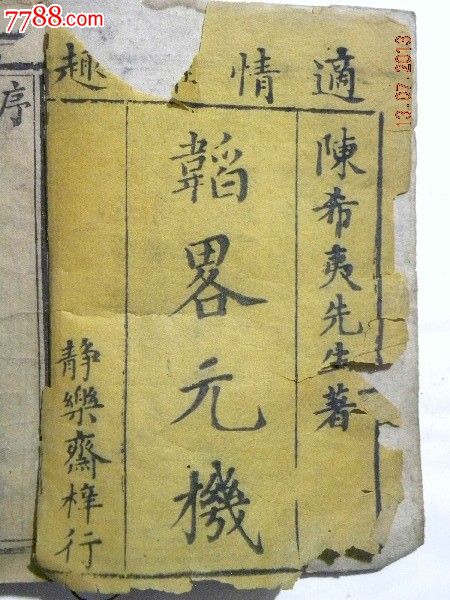 7788.com
13.07.2013
適情趣
陳希夷先生著
韜畧元機
静樂齋梓行
序